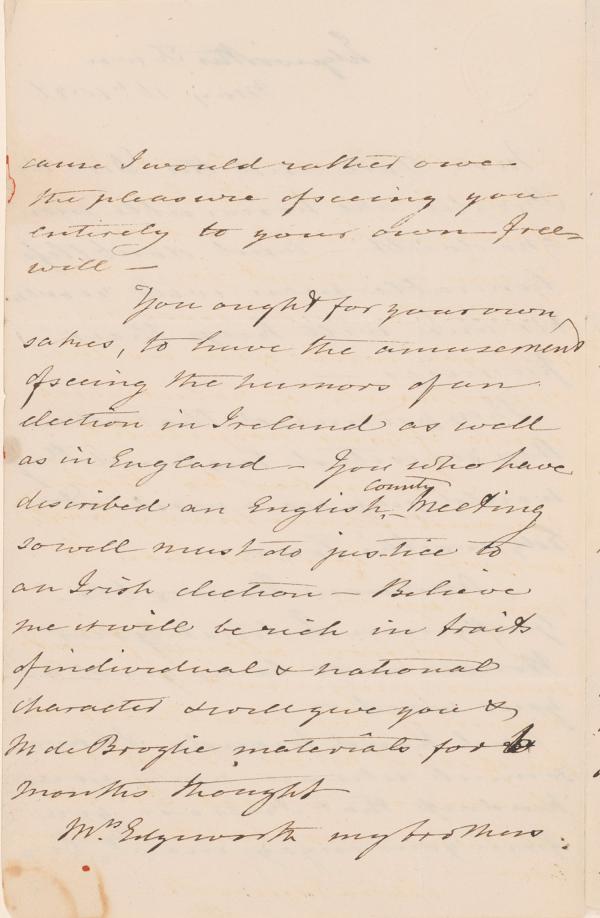 cause I would rather owe
the pleasure of seeing you
entirely to your own free=
will –
You ought for your own
sakes, to have the amusement
of seeing the humors of an
election in Ireland as well
as in England – You who have
discribed an English county Meeting
so well must do justice to
an Irish election – Believe
me it will be rich in traits
of individual & national
character & will give you &
M de Broglie materials for
months thought
Mrs Edgeworth my brothers